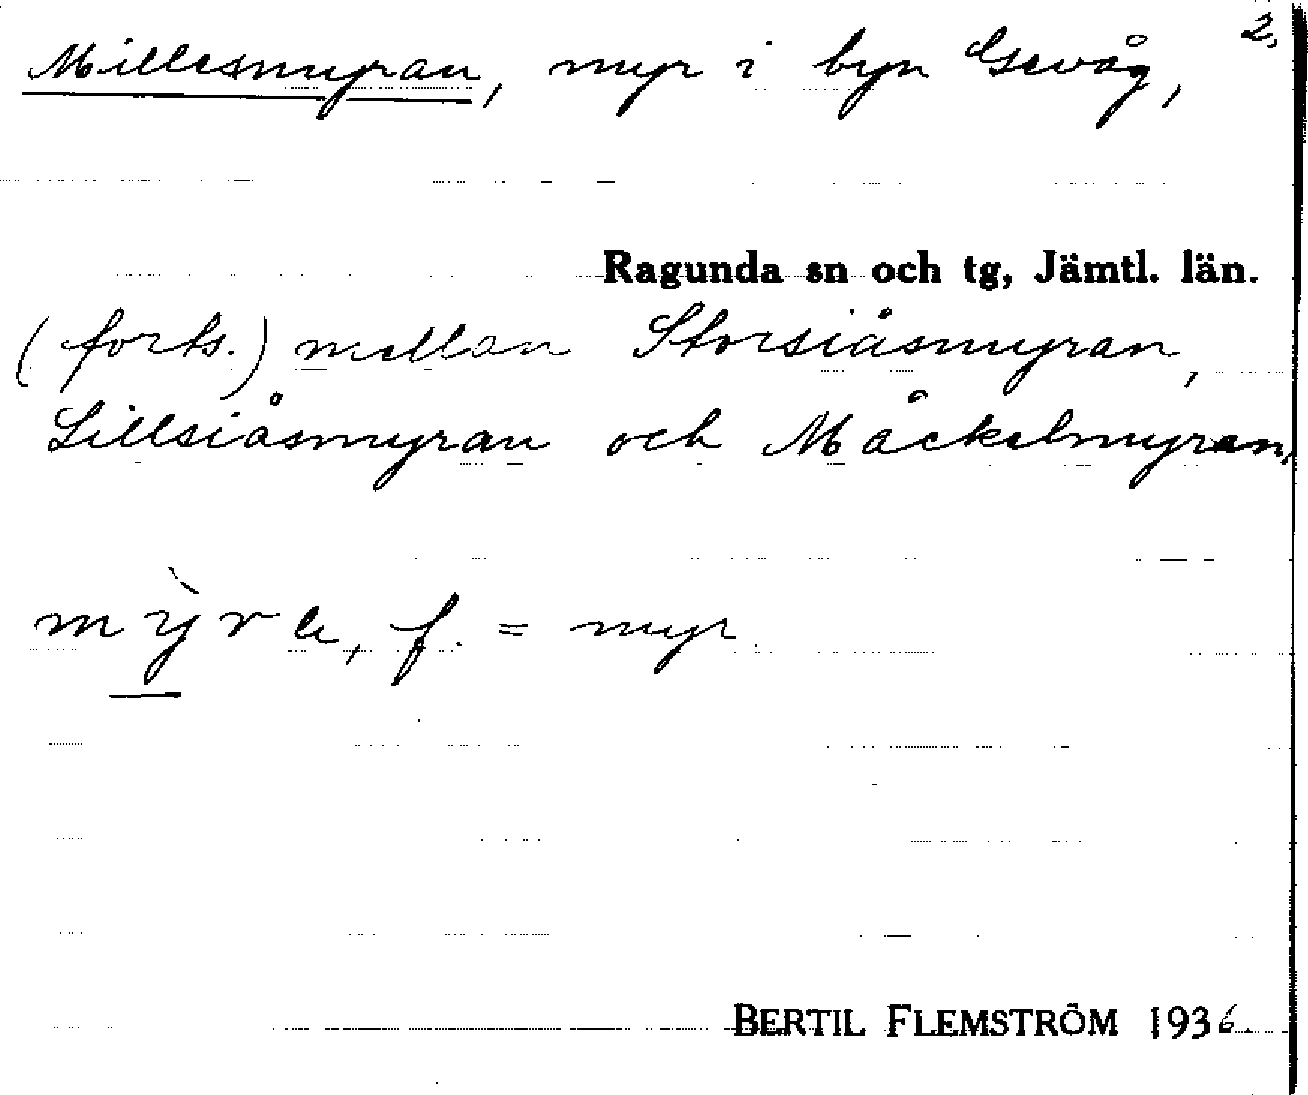 2.
Millesmyran, myr i byn Gevåg,
Ragunda sn och tg, Jämtl. län.
(forts.) mellan Storsiåsmyran,
Lillsiåsmyran och Måckelmyran.
f. = myr.
BERTIL FLEMSTRÖM 1936.